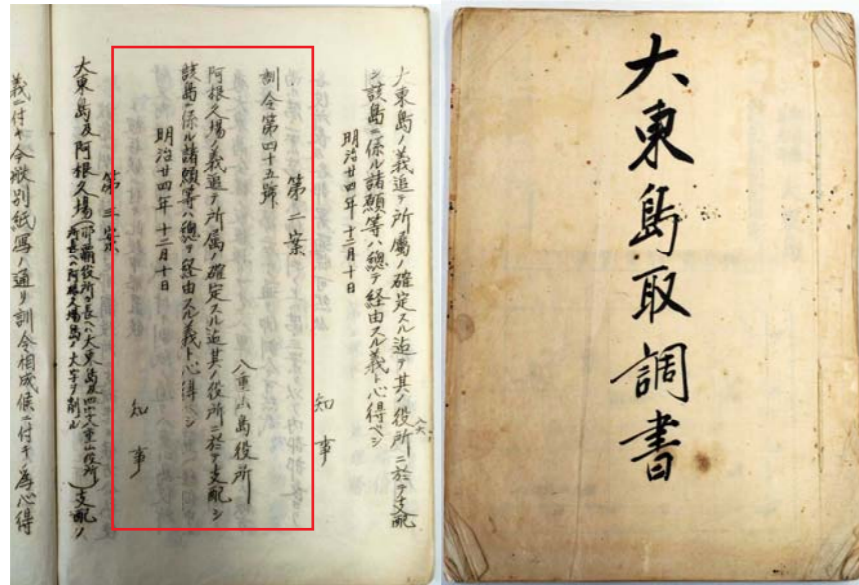 大東島取調書
大東島ノ義追テ所屬ノ確定スル迠テ其ノ役所ニ於テ支配
シ該島ニ係ル諸願等ハ總テ経由スル義ト心得ベシ
明治廿四年十二月十日
知事
第二案
訓令第四十五號
八重山島役所
阿根久場ノ義追テ所属ノ確定スル迠其ノ役所ニ於テ支配シ
該島ニ係ル諸願等ハ總テ経由スル義ト心得ベシ
明治廿四年十二月十日
知事
第三案
大東島及阿根久場 支配ノ
義ニ付キ今般別紙写ノ通リ訓令相成候ニ付キ為心得